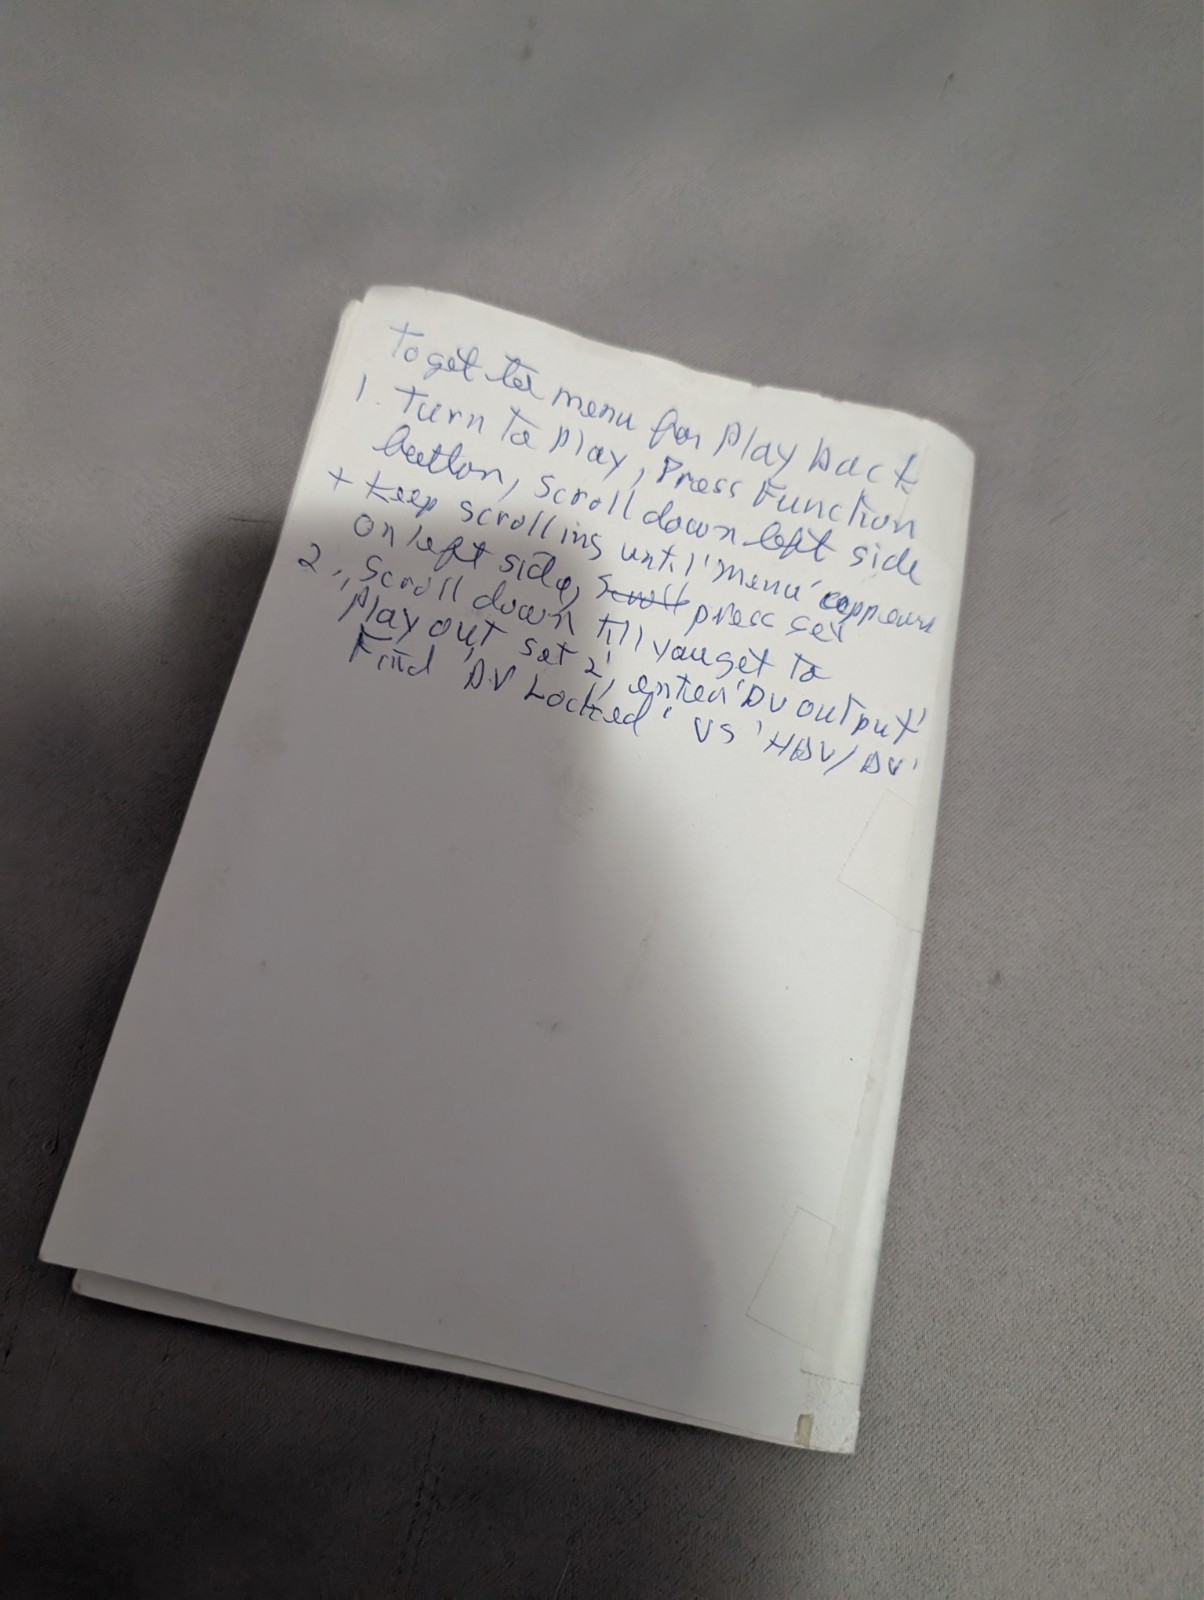 To get to menu for Play back
1. Turn to play, Press Function
button, scroll down left side
+ keep scrolling until 'menu' appears
on left side, scroll press set
2. Scroll down till you get to
'Play out set 2', enter 'DV output'
Find 'DV Locked' vs 'HDV/DV'